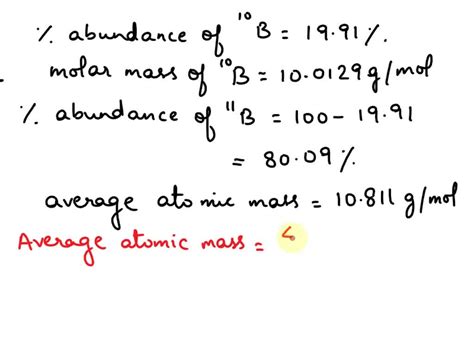 % abundance of ¹⁰B = 19.91 %.
molar mass of ¹⁰B = 10.0129 g/mol
% abundance of ¹¹B = 100 - 19.91
= 80.09 %
average atomic mass = 10.811 g/mol
Average atomic mass =